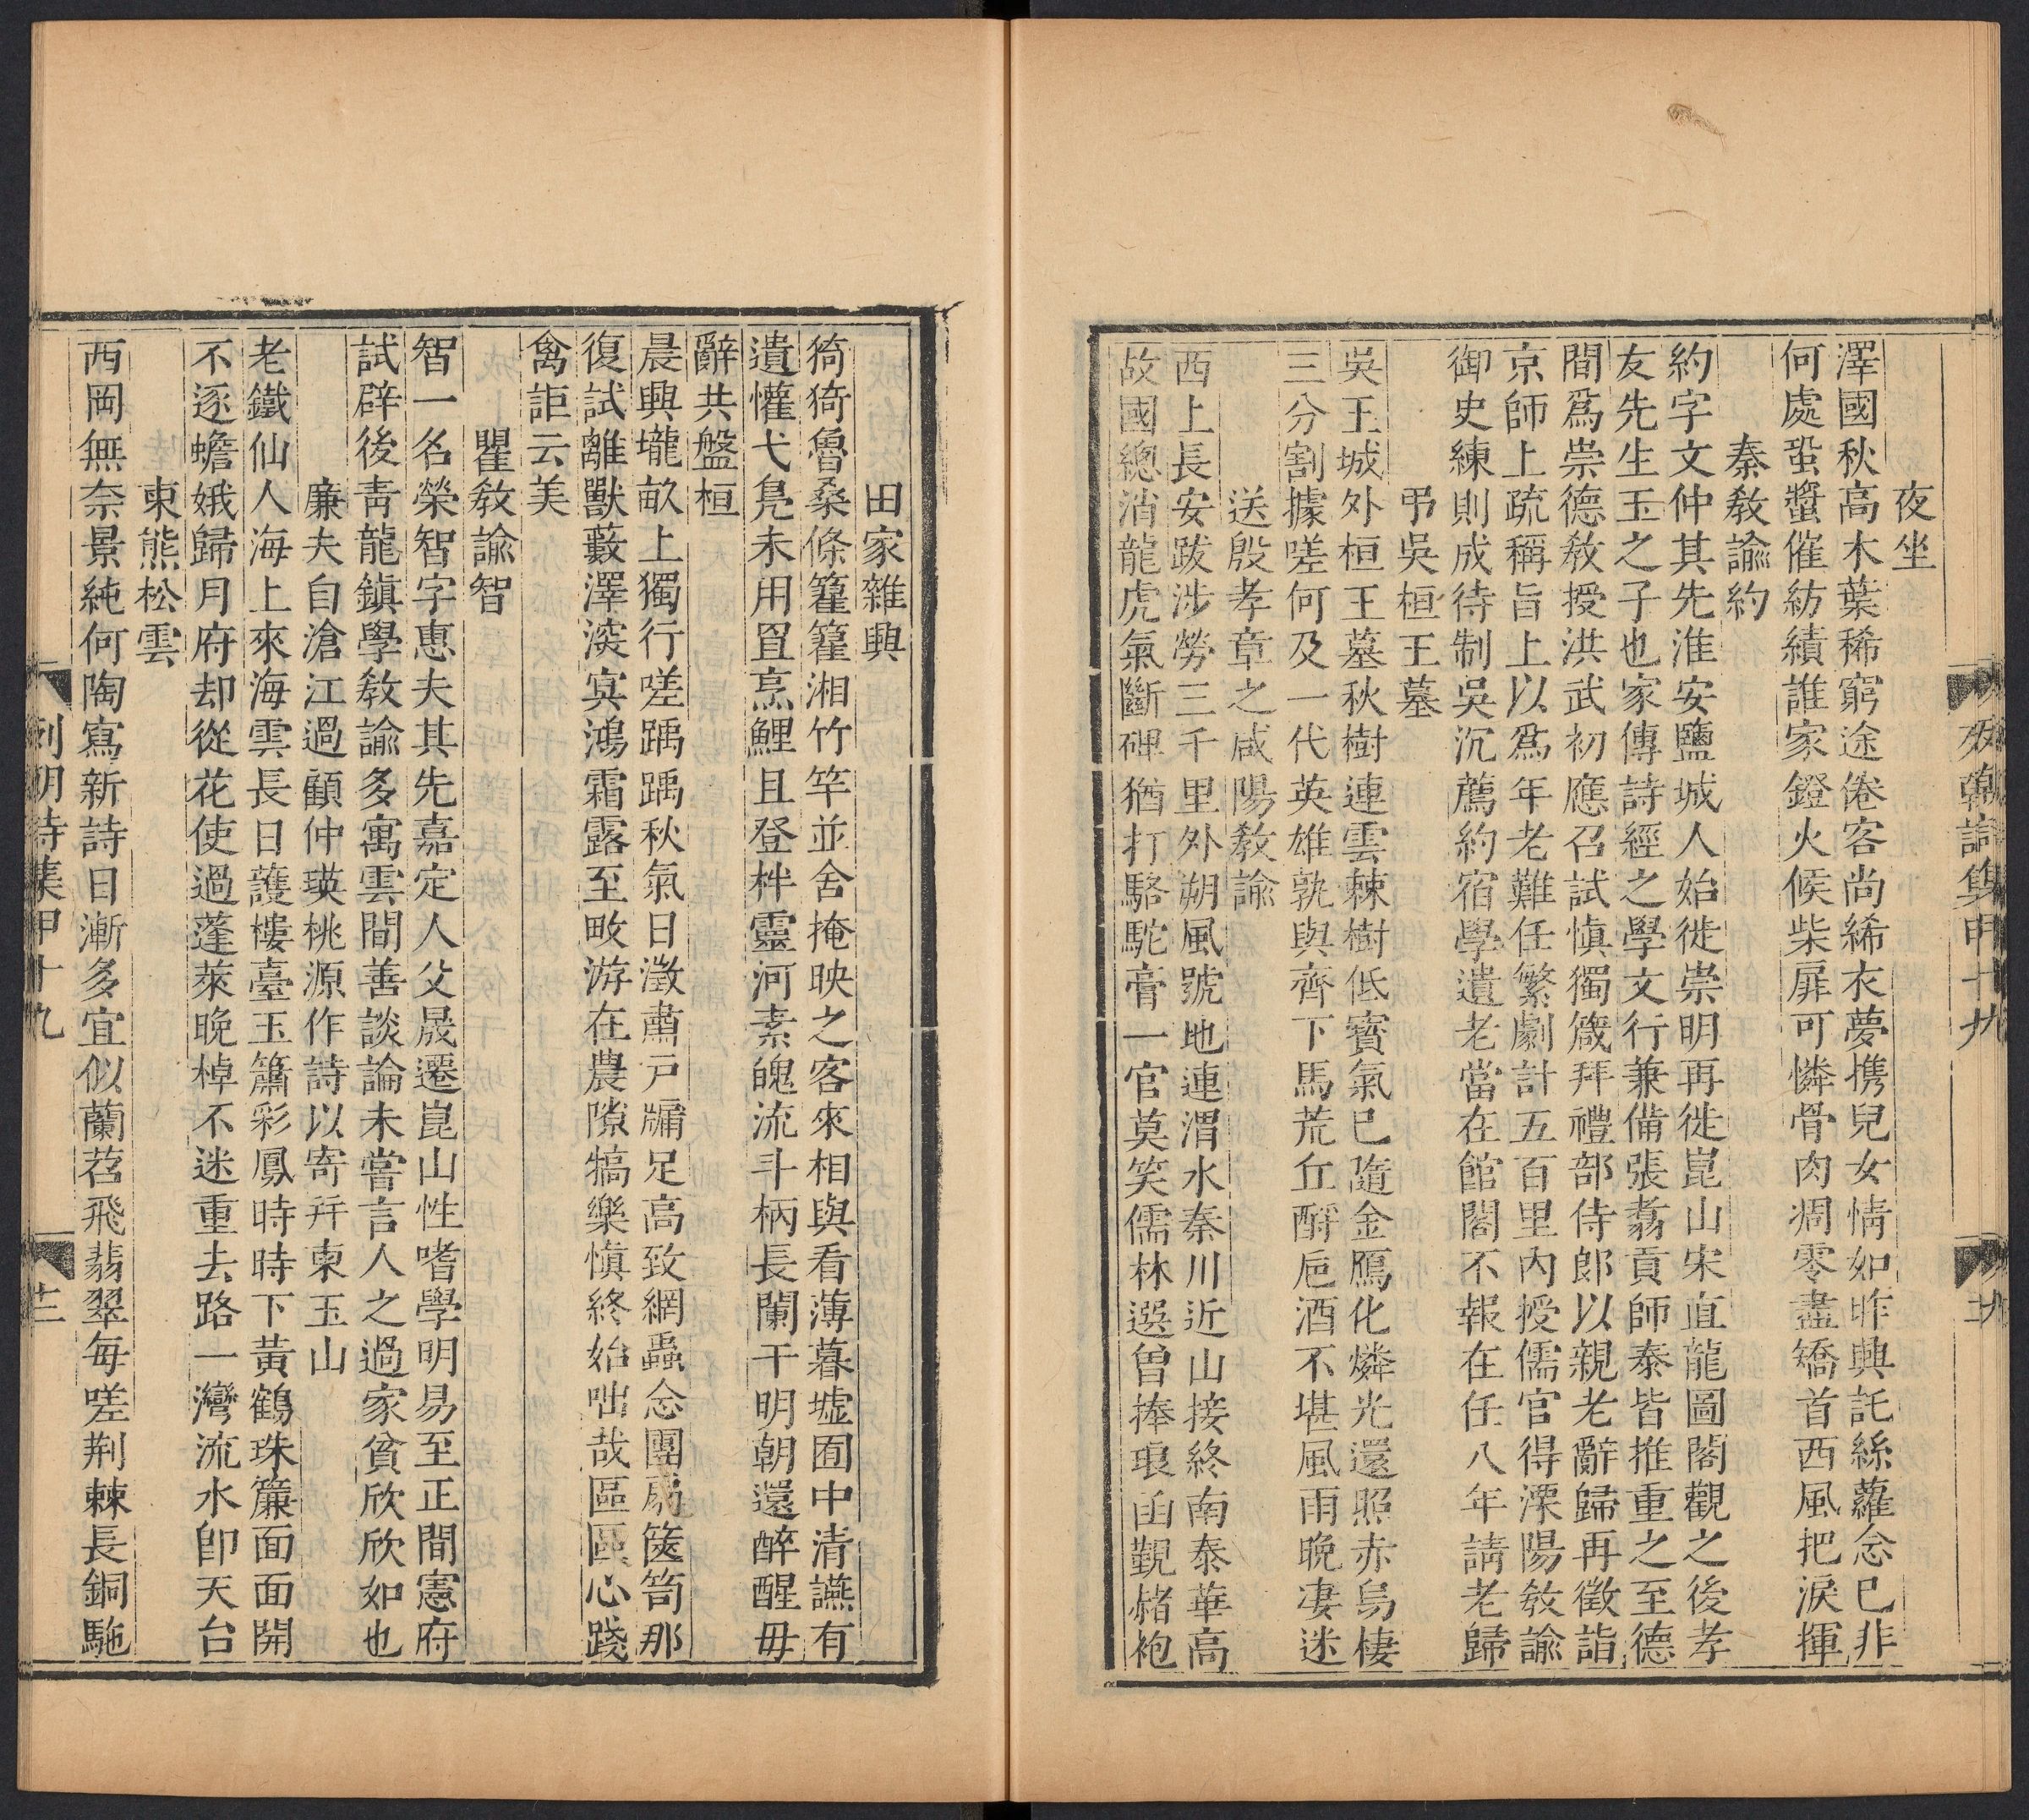 夜坐
澤國秋高木葉稀窮途倦客尚絺衣夢携兒女情如昨興託絲蘿念已非
何處蛩螿催紡績誰家鐙火候柴扉可憐骨肉凋零盡矯首西風把淚揮
秦敎諭約
約字文仲其先淮安鹽城人始徙崇明再徙崑山宋直龍圖閣觀之後孝
友先生玉之子也家傳詩經之學文行兼備張翥貢師泰皆推重之至德
間爲崇德敎授洪武初應召試愼獨箴拜禮部侍郎以親老辭歸再徵詣
京師上疏稱旨上以爲年老難任繁劇計五百里內授儒官得溧陽敎諭
御史練則成待制吳沉薦約宿學遺老當在館閣不報在任八年請老歸
弔吳桓王墓
吳王城外桓王墓秋樹連雲棘樹低寶氣已隨金鴈化燐光還照赤烏棲
三分割據嗟何及一代英雄孰與齊下馬荒丘酹卮酒不堪風雨晚凄迷
送殷孝章之咸陽敎諭
西上長安跋涉勞三千里外朔風號地連渭水秦川近山接終南泰華高
故國總消龍虎氣斷碑猶打駱駝膏一官莫笑儒林選曾捧琅函覲赭袍
甲十九
田家雜興
猗猗魯桑條籊籊湘竹竿並舍掩映之客來相與看薄暮墟囿中清讌有
遺懽弋鳧未用罝烹鯉且登柈靈河素魄流斗柄長闌干明朝還醉醒毋
辭共盤桓
晨興壠畝上獨行嗟踽踽秋氣日澂肅戸牖足高致網蟲念團扇篋笥那
復試離獸藪澤滐寘鴻霜露至畋游在農隙犒樂愼終始咄哉區區心踐
禽詎云美
瞿敎諭智
智一名榮智字惠夫其先嘉定人父晟遷崑山性嗜學明易至正間憲府
試辟後靑龍鎭學敎諭多寓雲間善談論未嘗言人之過家貧欣欣如也
廉夫自滄江過顧仲瑛桃源作詩以寄幷柬玉山
老鐵仙人海上來海雲長日護樓臺玉簫彩鳳時時下黃鶴珠簾面面開
不逐蟾娥歸月府却從花使過蓬萊晚棹不迷重去路一灣流水卽天台
柬熊松雲
西岡無奈景純何陶寫新詩日漸多宜似蘭苕飛翡翠每嗟荆棘長銅駞
列朝詩集甲十九